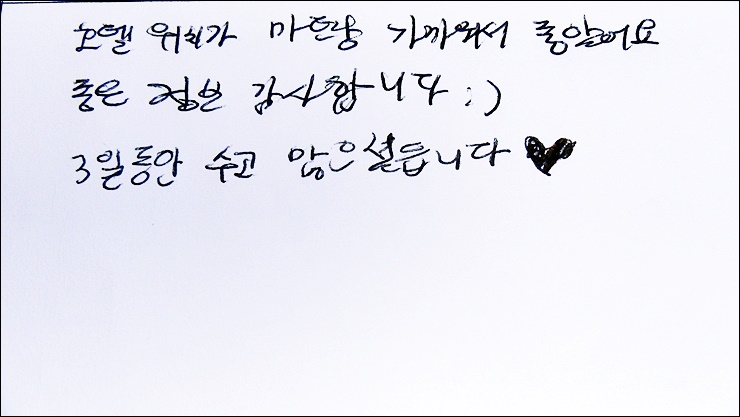 호텔 위치가 마트랑 가까워서 좋았어요
좋은 정보 감사합니다 :)
3일동안 수고 많으셨습니다 ♥